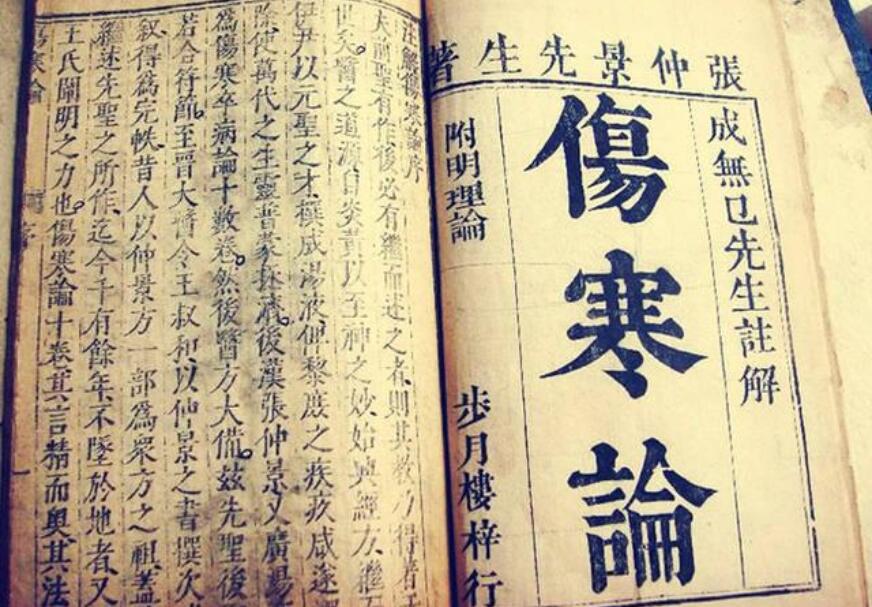 張仲景先生著
成無已先生註解
傷寒論
附明理論
步月樓梓行
注解傷寒論序
夫前聖有作後必有繼而述之者則其教乃得著于
世矣醫之道源自炎黃以至神之妙始興經方繼而
伊尹以元聖之才撰成湯液俾黎庶之疾疢咸遂
除使萬代之生靈普蒙拯濟後漢張仲景又廣湯
爲傷寒卒病論十數卷然後醫方大備茲先聖後
若合符節至晉大醫令王叔和以仲景之書撰次
叙得爲完帙昔人以仲景方一部爲衆方之祖蓋
繼述先聖之所作迄今千有餘年不墜於地者又
王氏闡明之力也傷寒論十卷其言精而奧其法
傷寒論 序